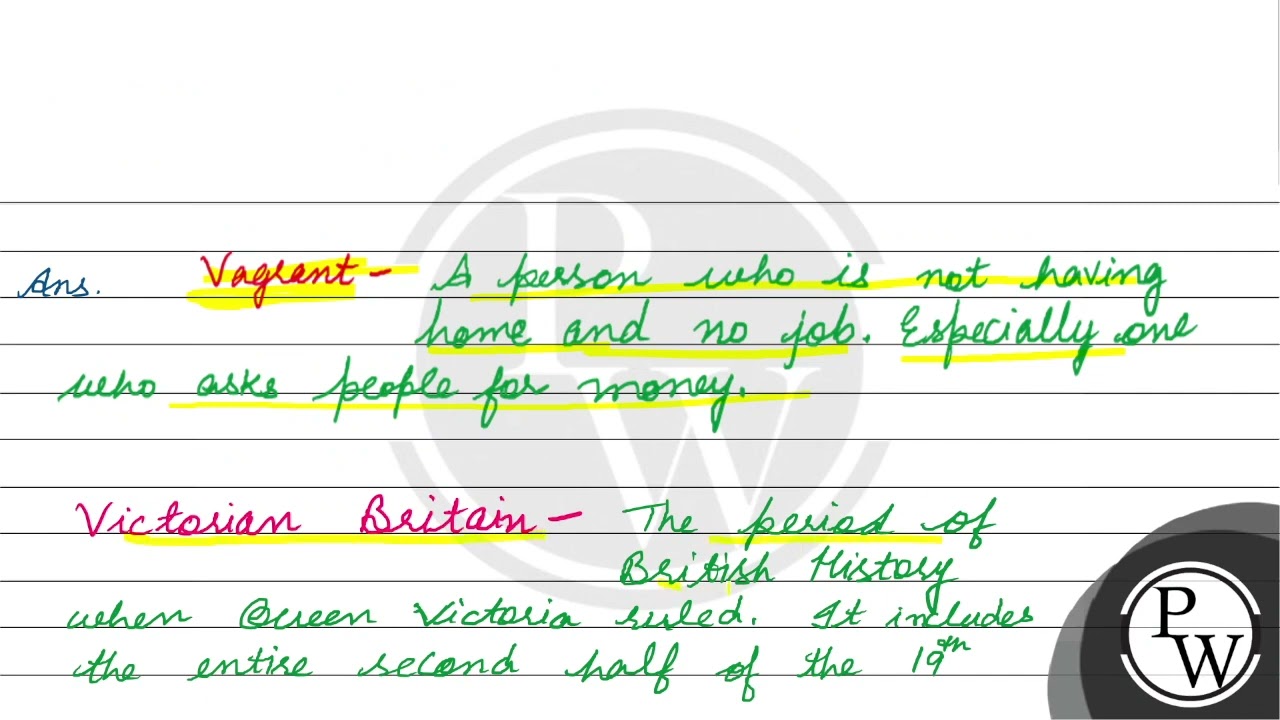 Ans. Vagrant - A person who is not having
home and no job. Especially one
who asks people for money.
Victorian Britain - The period of
British History
when Queen Victoria ruled. It includes
the entire second half of the 19th
PW
PW